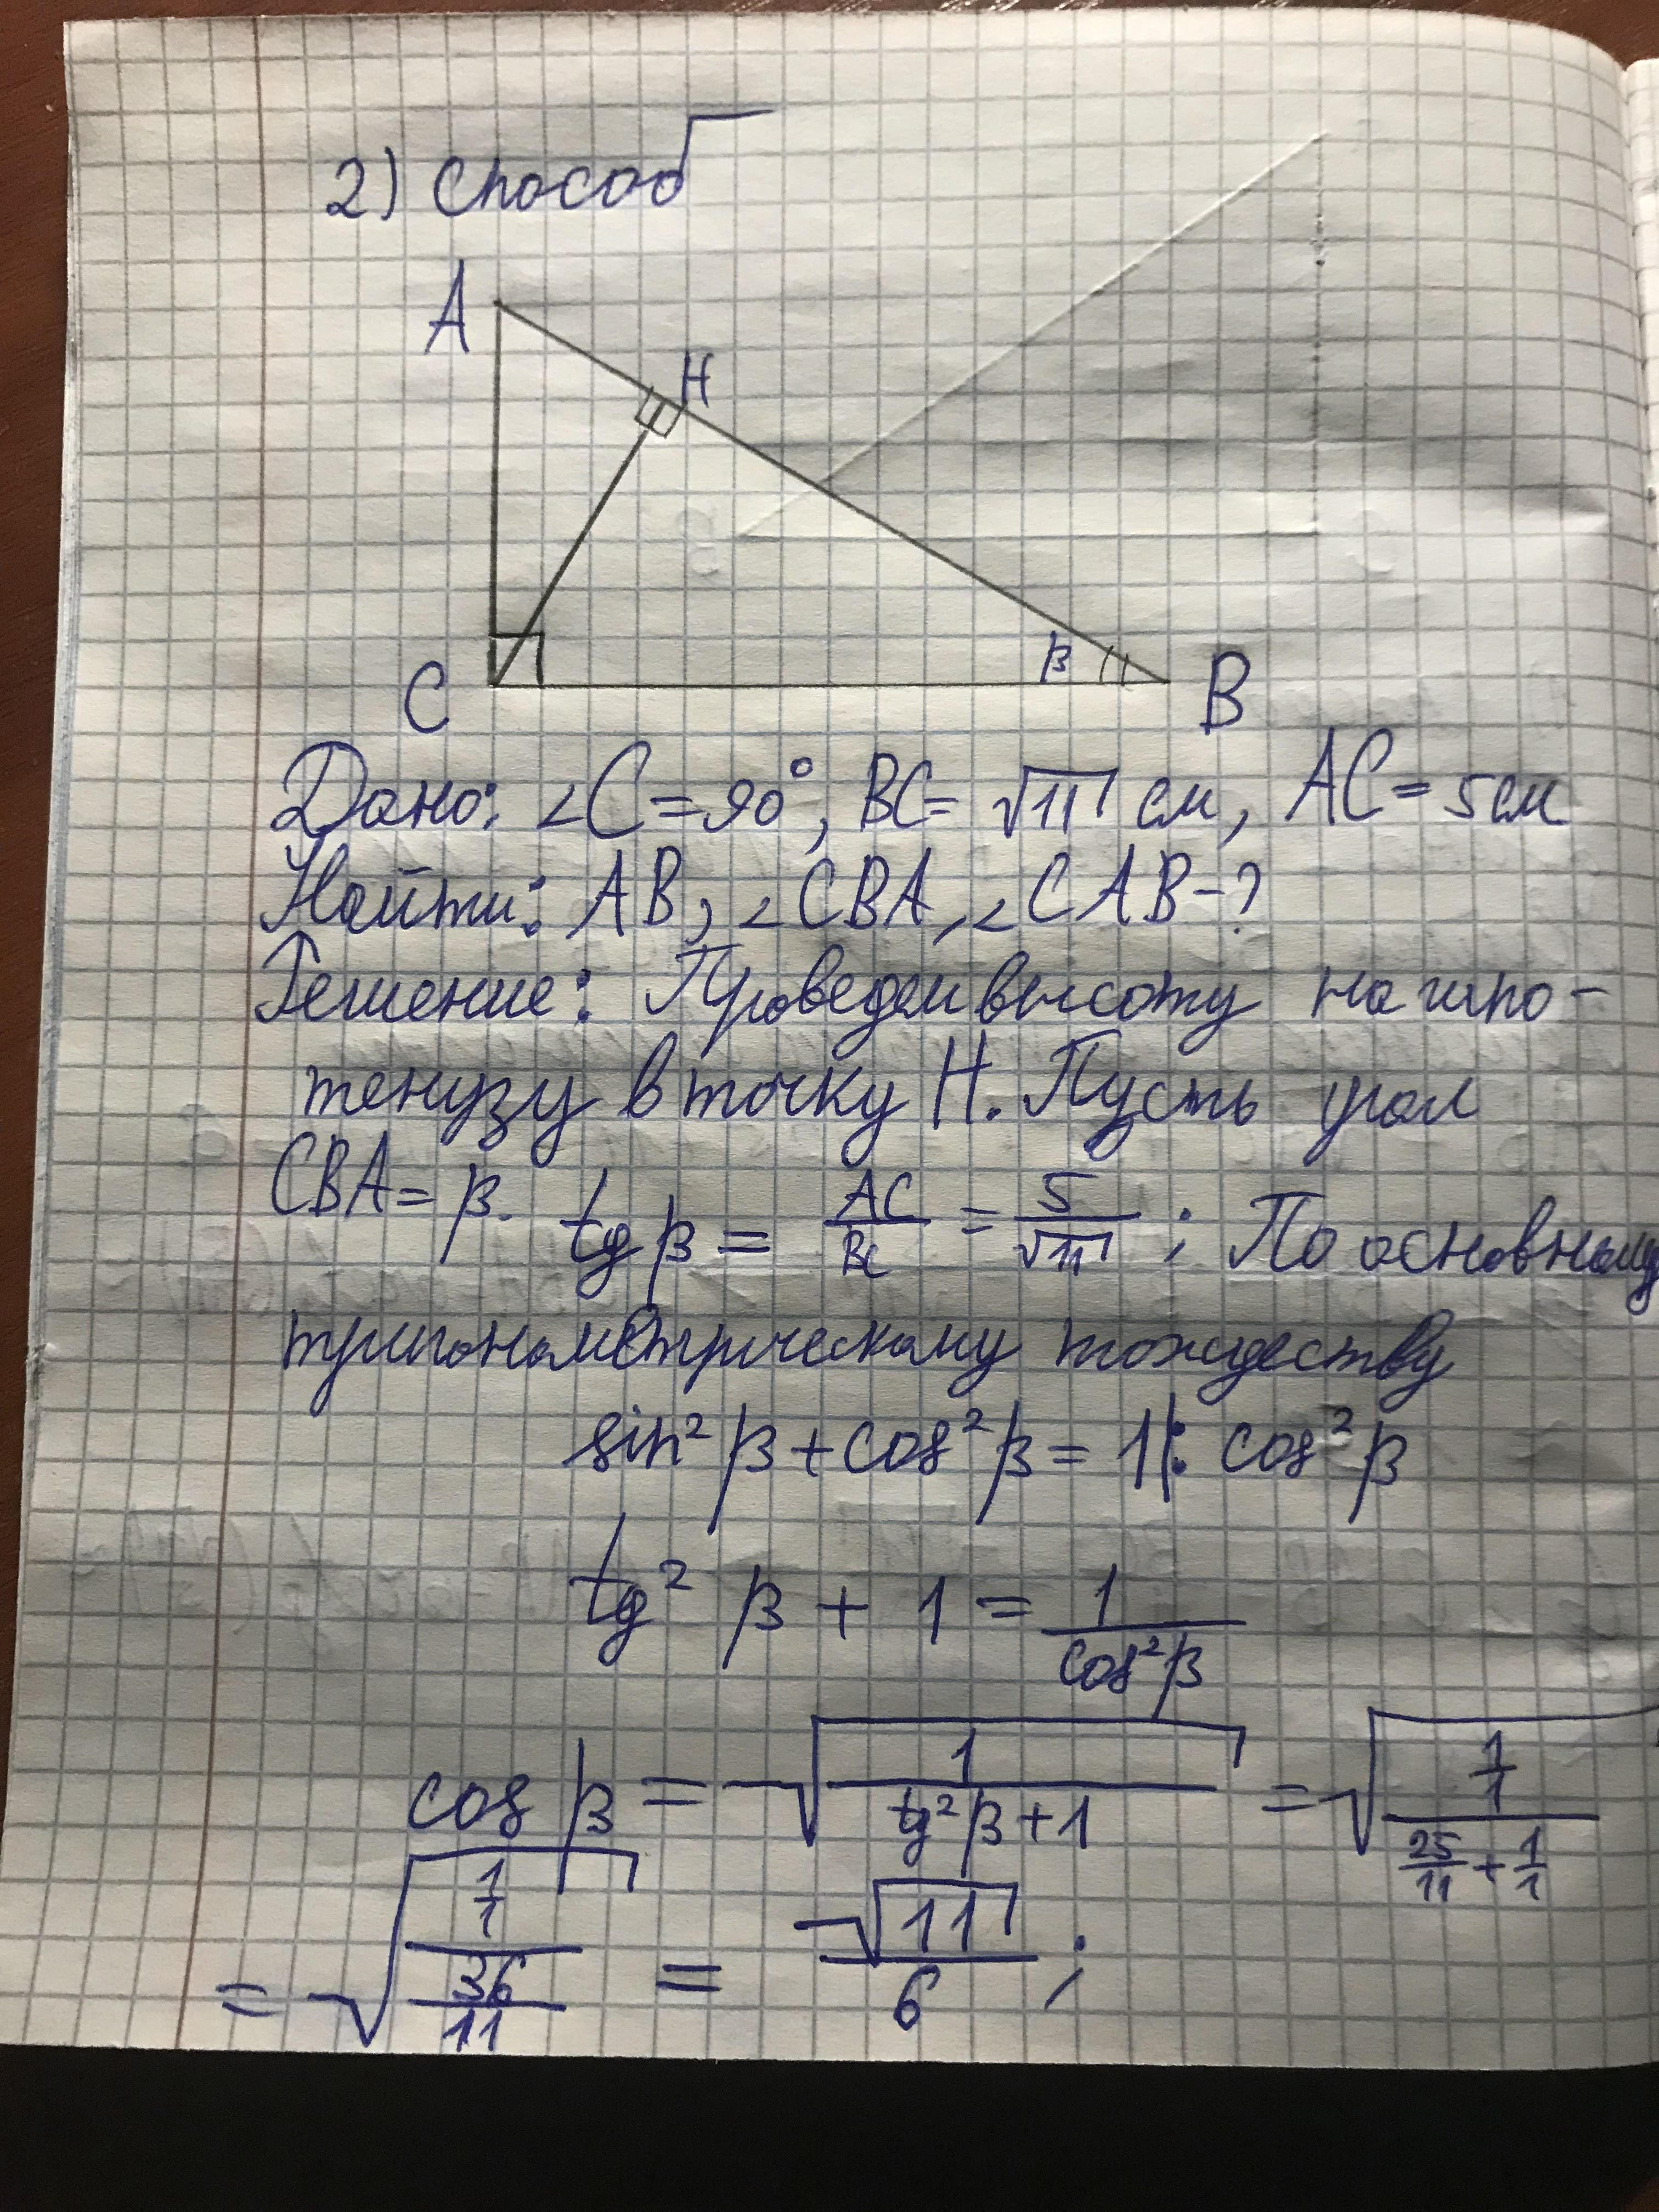 2) способ
A
H
β
C
B
Дано: ∠C = 90°, BC = √11 см, AC = 5 см
Найти: AB, ∠CBA, ∠CAB - ?
Решение: Проведем высоту на гипо-
тенузу в точку H. Пусть угол
CBA = β. tg β = AC/BC = 5/√11 ; По основному
тригонометрическому тождеству
sin² β + cos² β = 1 |: cos² β
tg² β + 1 = 1/cos² β
cos β = √(1/(tg² β + 1)) = √((1/1)/(25/11 + 1/1))
= √((1/1)/(36/11)) = √11/6 ;